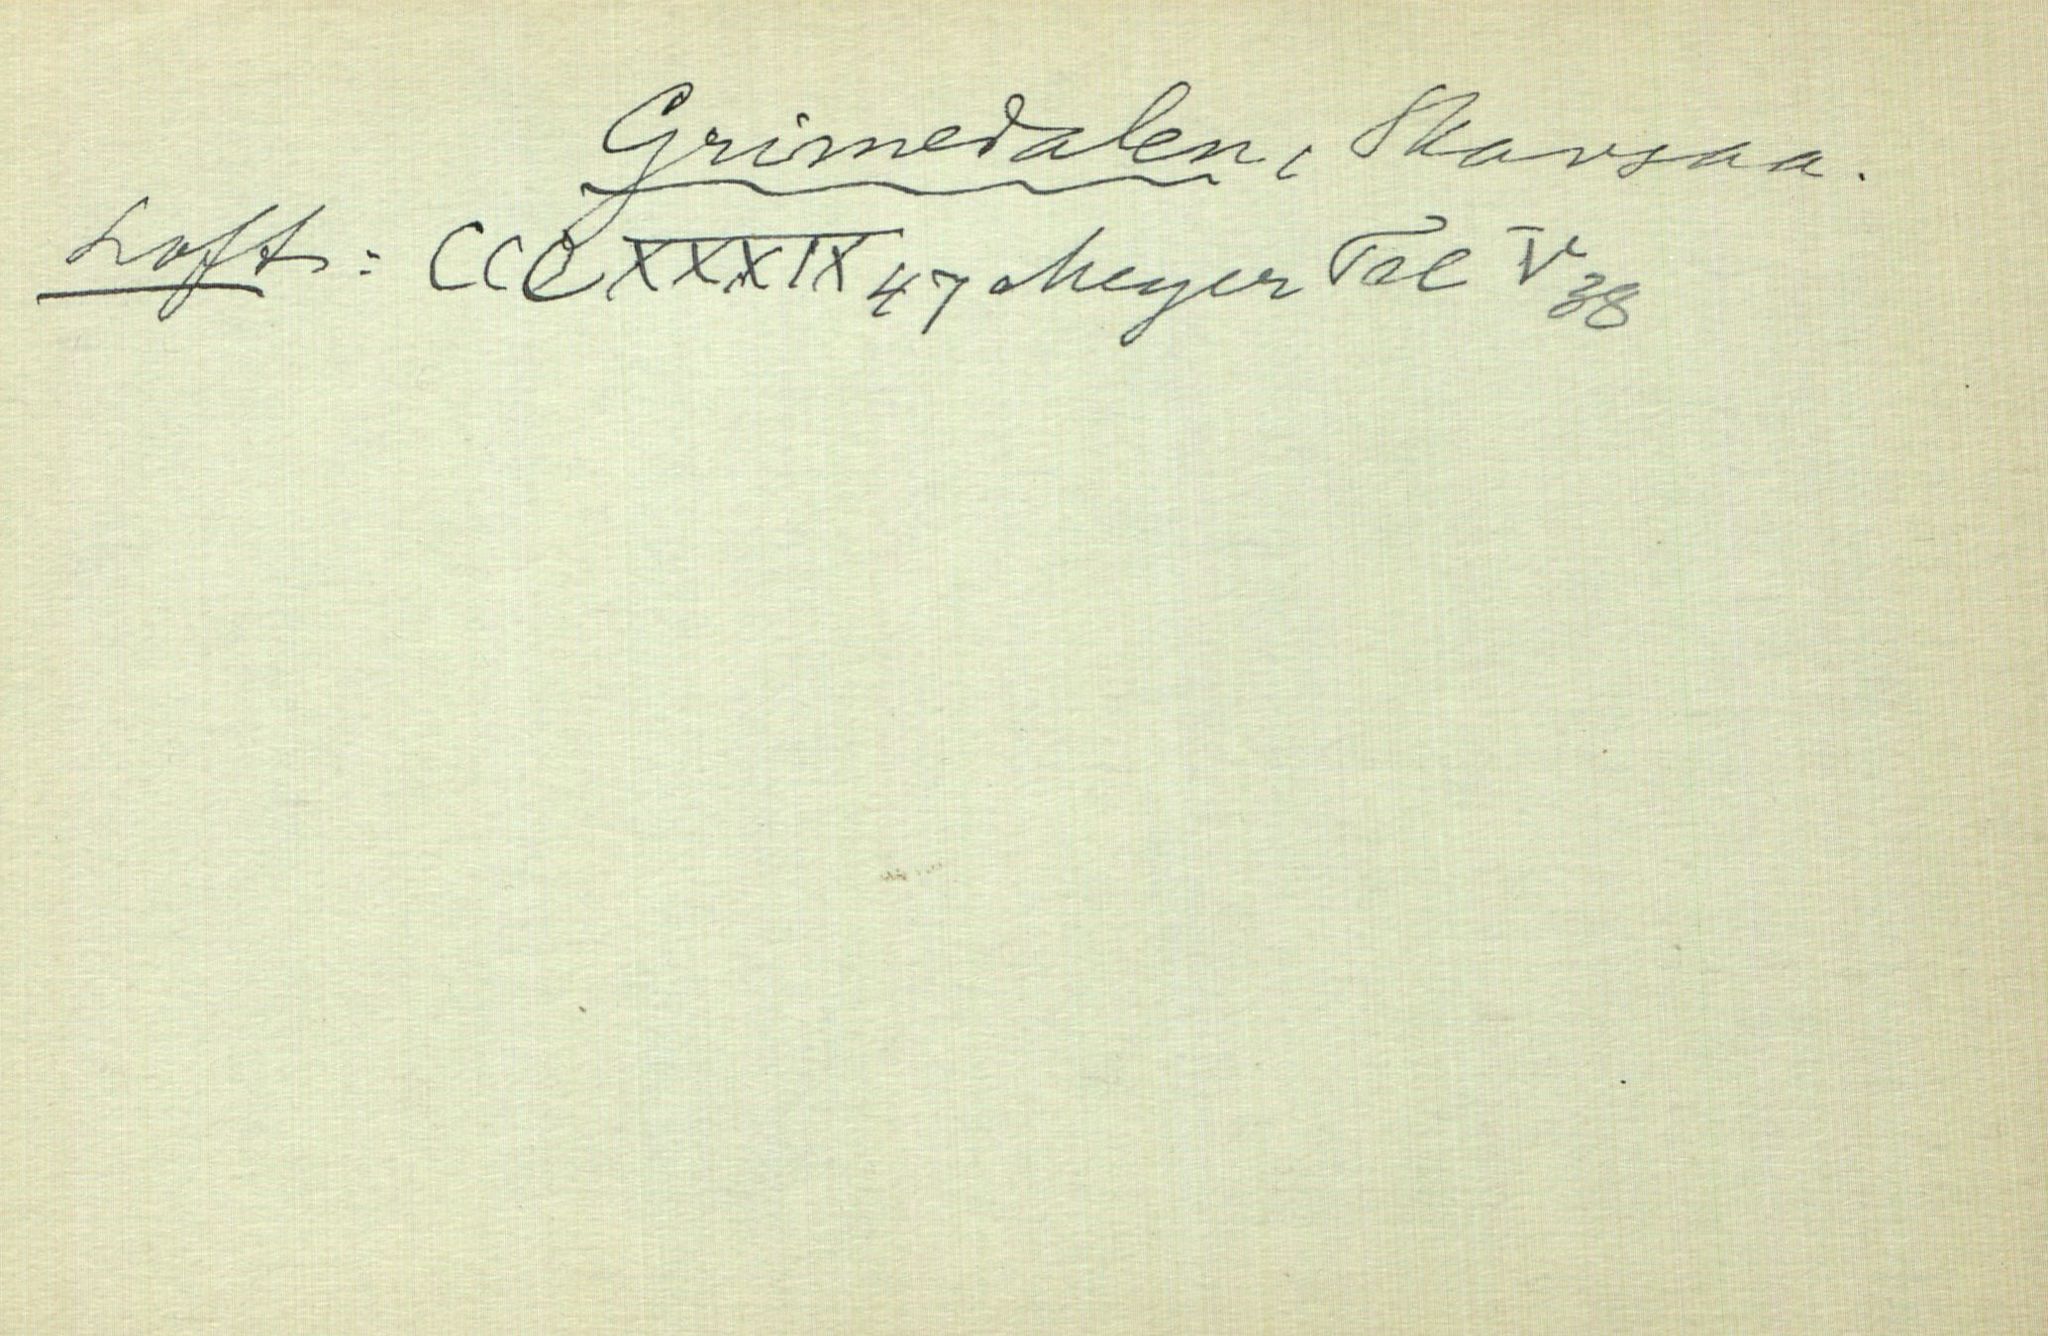 Grimedalen, Skavsaa.
Loft: CCCXXXIX 47 Meyer Tel V 38